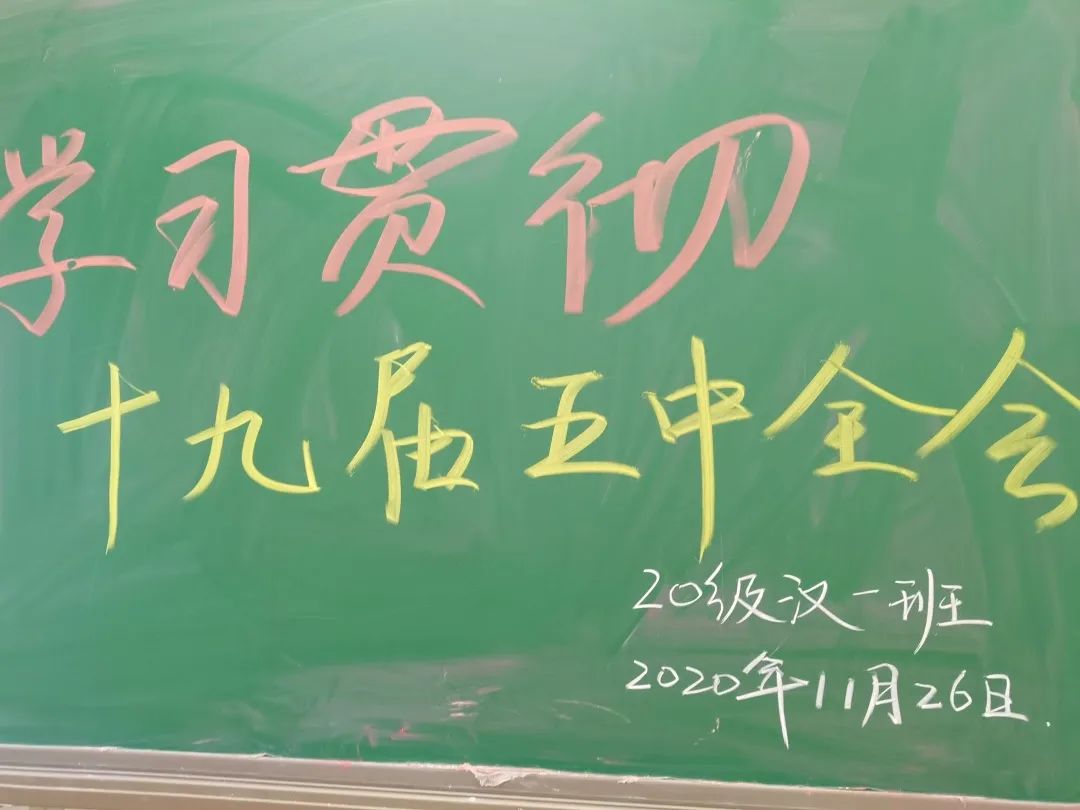 学习贯彻
十九届五中全会
20级汉一班
2020年11月26日.